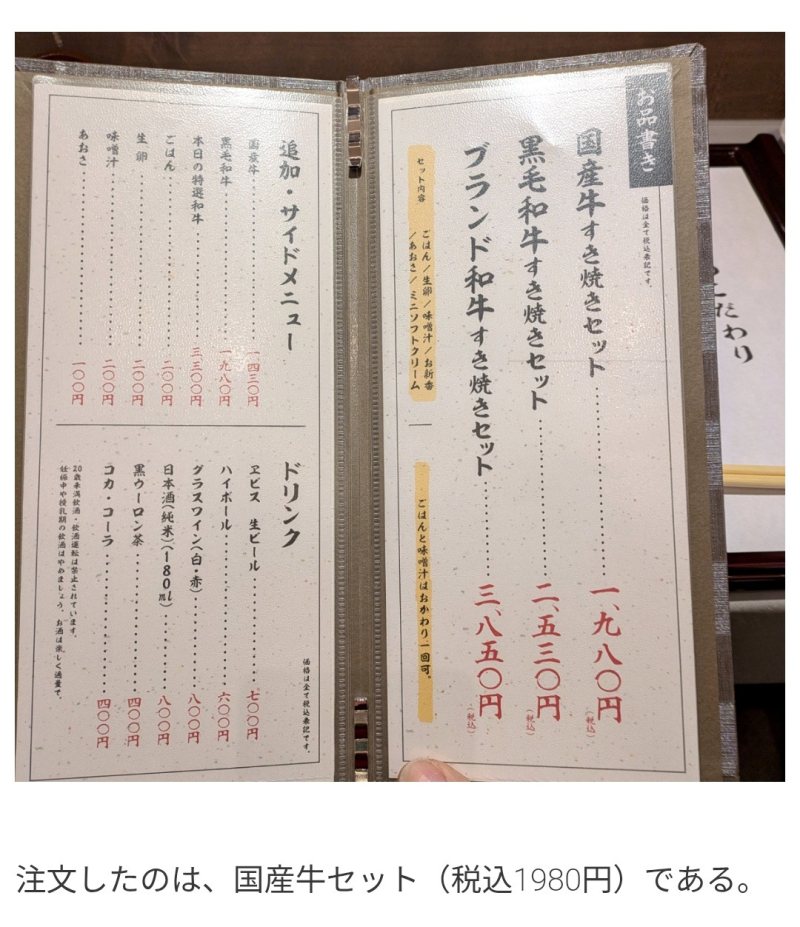 お品書き
価格は全て税込表記です。
国産牛すき焼きセット 一、九八〇円(税込)
黒毛和牛すき焼きセット 二、五三〇円(税込)
ブランド和牛すき焼きセット 三、八五〇円(税込)
セット内容
ごはん/生卵/味噌汁/お新香
/あおさ/ミニソフトクリーム
ごはんと味噌汁はおかわり一回可。
追加・サイドメニュー
国産牛 一四三〇円
黒毛和牛 一九八〇円
本日の特選和牛 三三〇〇円
ごはん 二〇〇円
生卵 二〇〇円
味噌汁 二〇〇円
あおさ 一〇〇円
価格は全て税込表記です。
ドリンク
ヱビス 生ビール 七〇〇円
ハイボール 六〇〇円
グラスワイン(白・赤) 八〇〇円
日本酒(純米)(180㎖) 八〇〇円
黒ウーロン茶 四〇〇円
コカ・コーラ 四〇〇円
20歳未満飲酒・飲酒運転は禁止されています。
妊娠中や授乳期の飲酒はやめましょう。お酒は楽しく適量で。
だわり
注文したのは、国産牛セット（税込1980円）である。